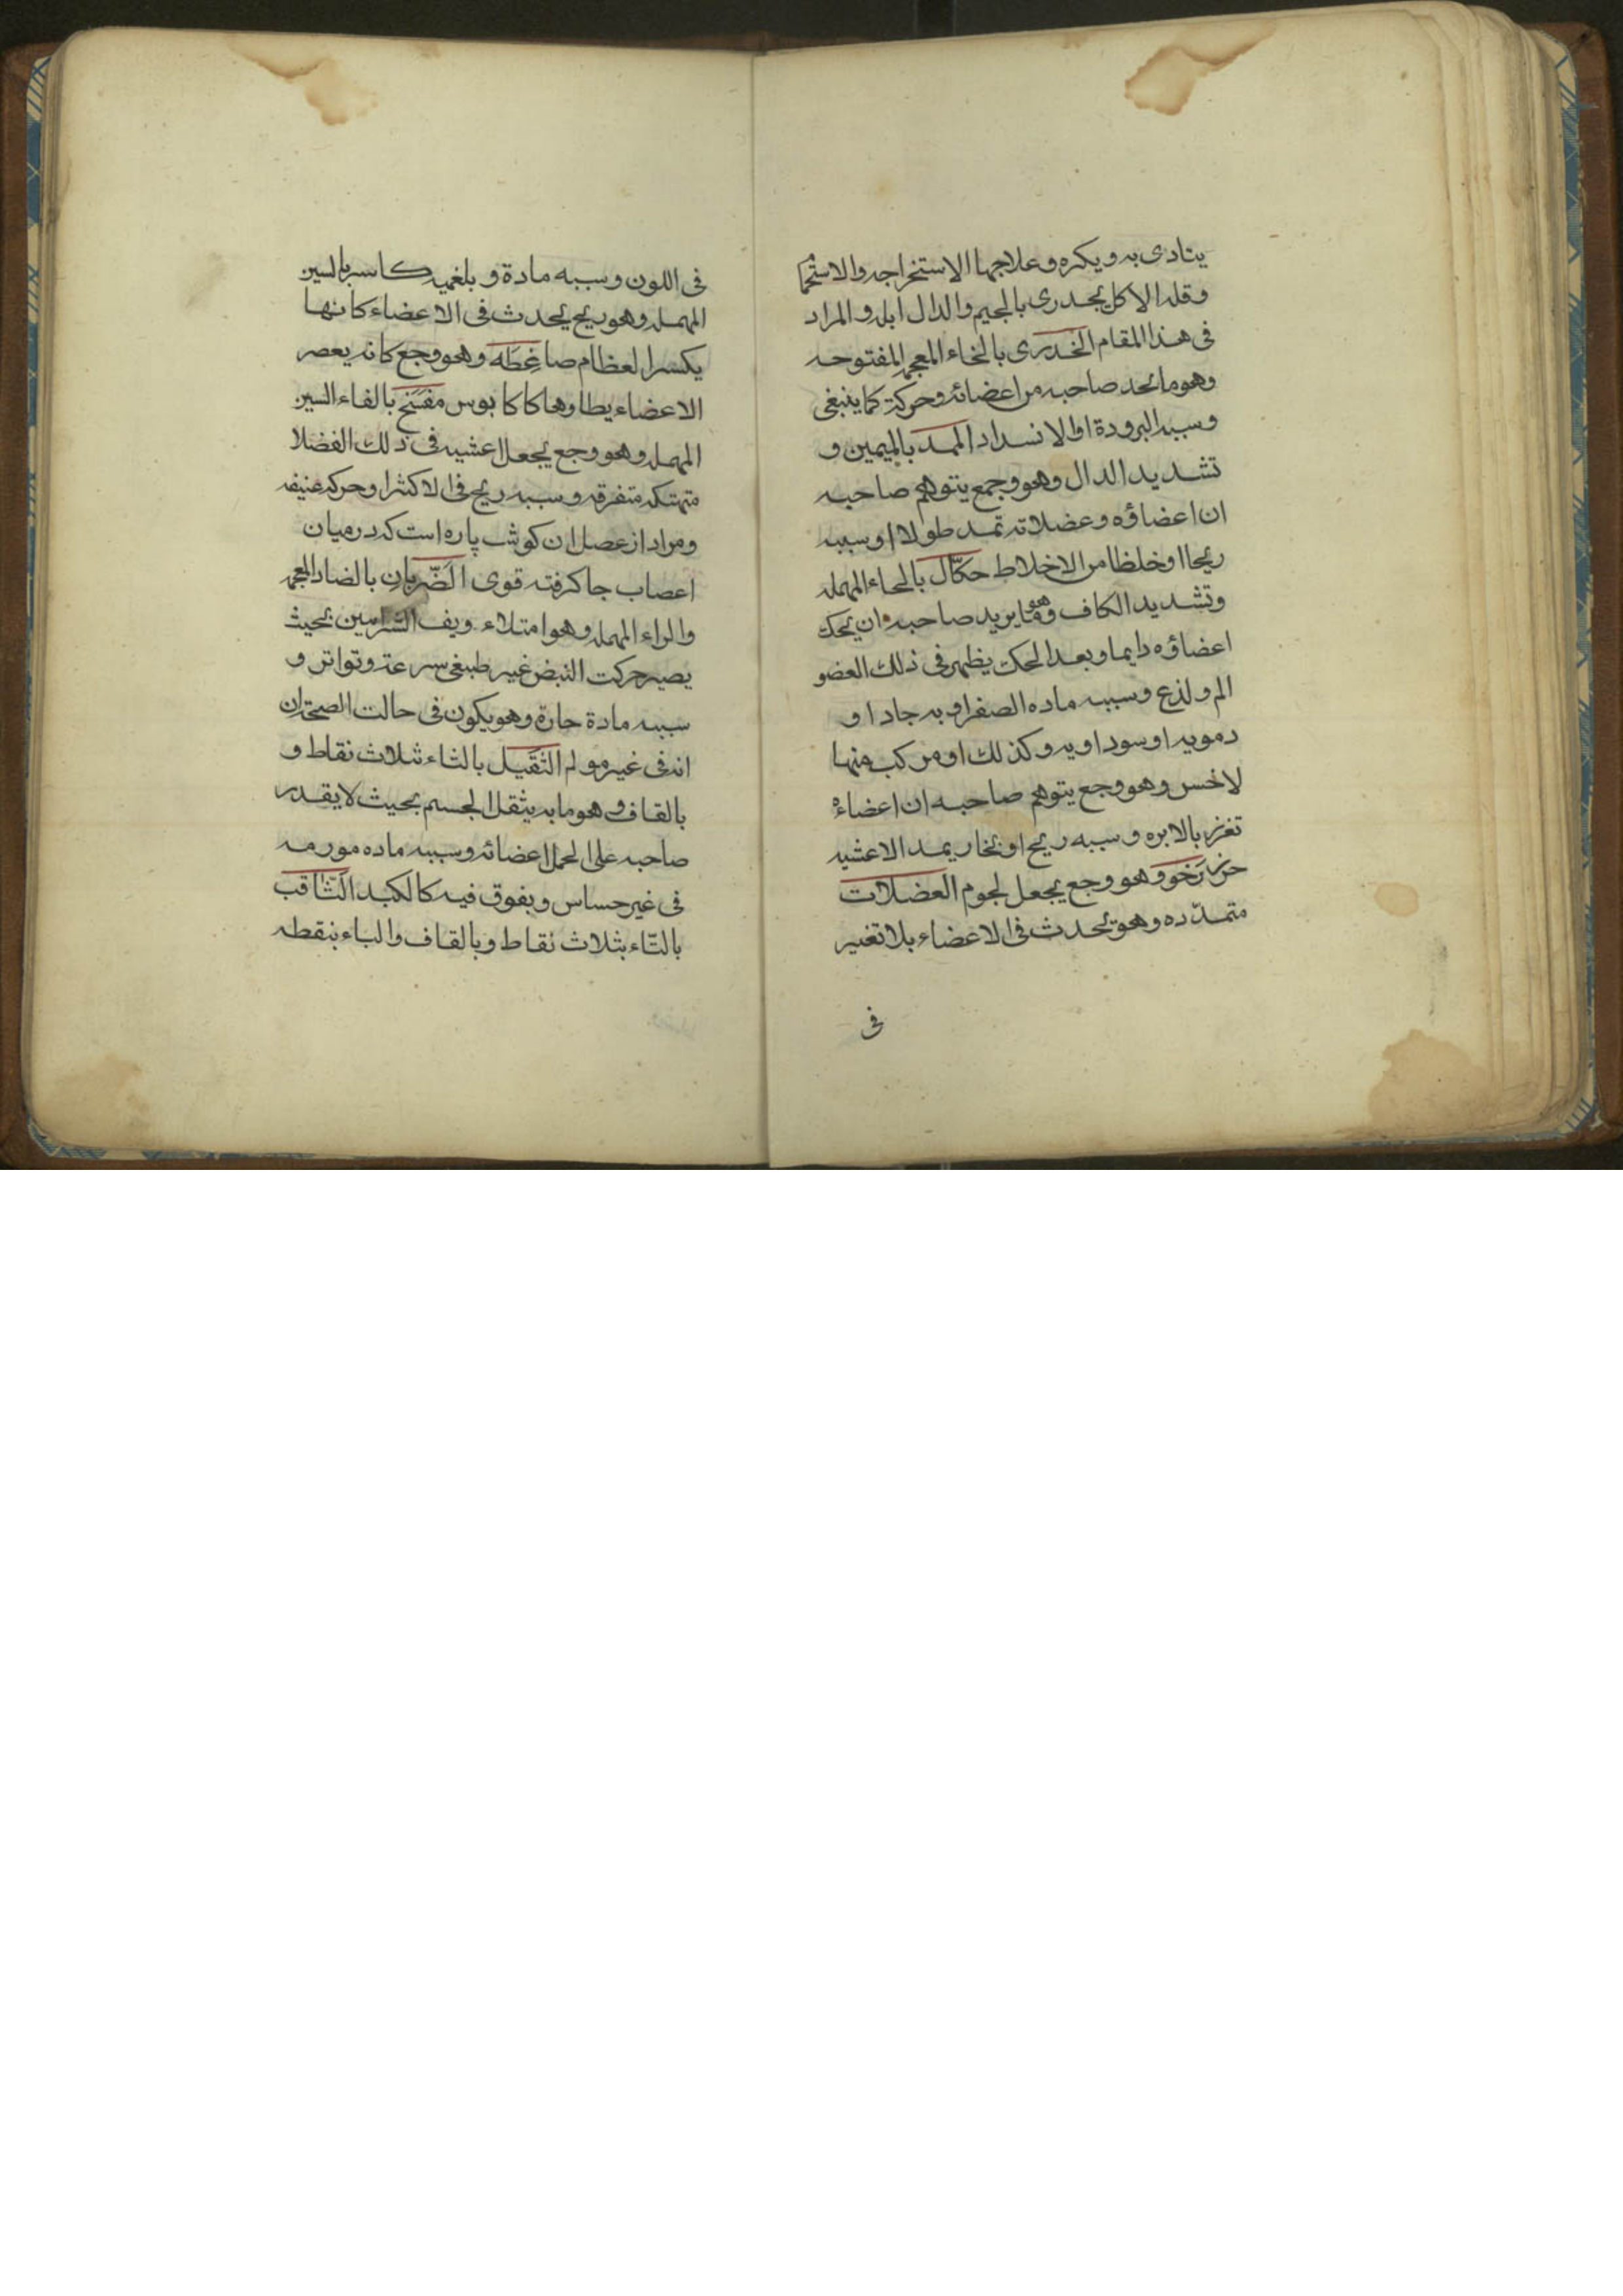 يتادى به ويكره وعلاجها الاستخراجه والاستحما
وقله الاكل بجدرى بالجيم والدال ابله والمراد
فى هذا المقام الخدرى بالخاء المعجمه المفتوحه
وهو ما نحد صاحبه من اعضائه وحركة كما ينبغى
وسببه البرودة او الانسداد الممد بالميمين و
تشديد الدال وهو وجمع يتوهم صاحبه
ان اعضاؤه وعضلاته تمد طولا او سببه
ريحا او خلظا من الاخلاط حكّال بالحاء المهمله
وتشديد الكاف وهو ما يريد صاحبه ان يحك
اعضاؤه دايما وبعد الحك يظهر فى ذلك العضو
الم ولذع وسببه ماده الصفراويه جادا و
دمويه او سوداويه وكذلك او مركب منها
لاخس وهو وجع يتوهم صاحبه ان اعضاءه
تغرز بالابره وسببه ريح او بخار يمد الاعشيه
رَخو وهو وجع يجعل لجوم العضلات
متمدّده وهو يحدث فى الاعضاء بلا تغير
فى
فى اللون وسببه مادة و بلغميه كاسر بالسين
المهمله وهو ريح يحدث فى الاعضاء كانها
يكسر العظام صاغطَه وهو وجع كانه يعصر
الاعضاء يطاوها كاكابوس مفسَخ بالفاء السين
المهمله وهو وجع يجعل اعشيه فى ذلك الفضلا
متهتكه متفرقه وسببه ريح فى الاكثر او حركه عنيفه
ومراد از عصل ان كوشت پاره است كه درميان
اعصاب جا كرفته قوى الضّربان بالضاد المعجمه
والراء المهمله وهو امتلاء ويف الشرامين بحيث
يصير حركت النبض غير طبيغى سرعته وتواتر و
سببه مادة حارة وهو يكون فى حالت الصحة ان
انه فى غير مولم الثَقَيل بالثاء ثلاث نقاط و
بالقاف وهو ما به يثقل الجسم بحيث لا يقدر
صاحبه على الحمل اعضائه وسببه ماده مورمه
فى غير حساس ويفوق فيه كالكبد الثَاقب
بالثّاء بثلاث نقاط وبالقاف والباء بنقطه